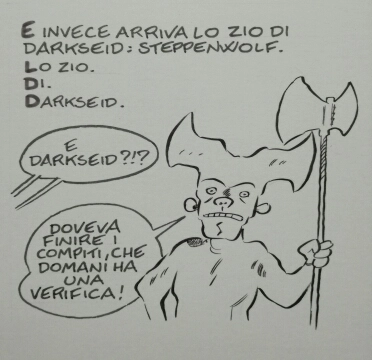 E INVECE ARRIVA LO ZIO DI
DARKSEID: STEPPENWOLF.
LO ZIO.
DI.
DARKSEID.
E
DARKSEID?!?
DOVEVA
FINIRE I
COMPITI, CHE
DOMANI HA
UNA
VERIFICA!